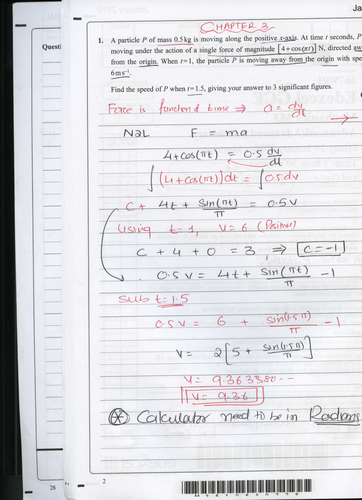 Ja
CHAPTER 3
Questi
1. A particle P of mass 0.5 kg is moving along the positive x-axis. At time t seconds, P
moving under the action of a single force of magnitude [4 + cos(πt)] N, directed aw
from the origin. When t = 1, the particle P is moving away from the origin with spe
6 m s⁻¹.
Find the speed of P when t = 1.5, giving your answer to 3 significant figures.
Force is function of time ⇒ a = dv/dt
N2L F = ma
4 + cos(πt) = 0.5 dv/dt
∫(4 + cos(πt)) dt = ∫0.5 dv
C + 4t + sin(πt)/π = 0.5V
Using t = 1, V = 6 (Positive)
C + 4 + 0 = 3, ⇒ C = -1
0.5V = 4t + sin(πt)/π - 1
Sub t = 1.5
0.5V = 6 + sin(1.5π)/π - 1
V = 2[5 + sin(1.5π)/π]
V = 9.363380--
V = 9.36
* Calculator need to be in Radians
28
2